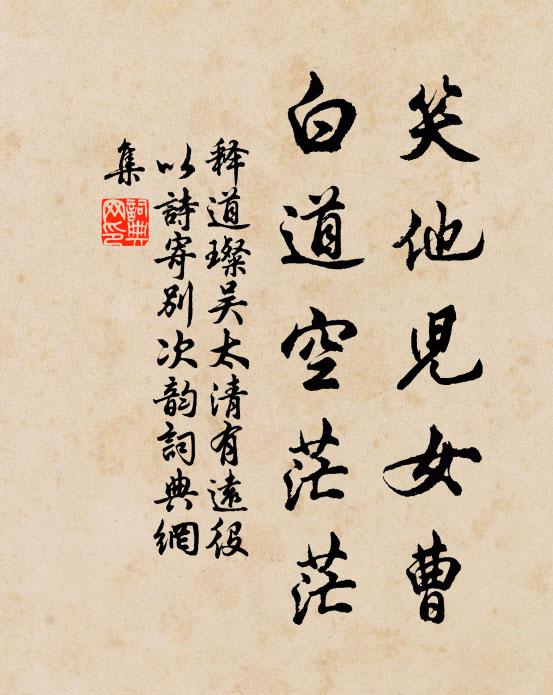 笑他児女曹
白道空茫茫
释道璨吴太清有遠役
以詩寄别次韵詞典網
集
詞典
网印